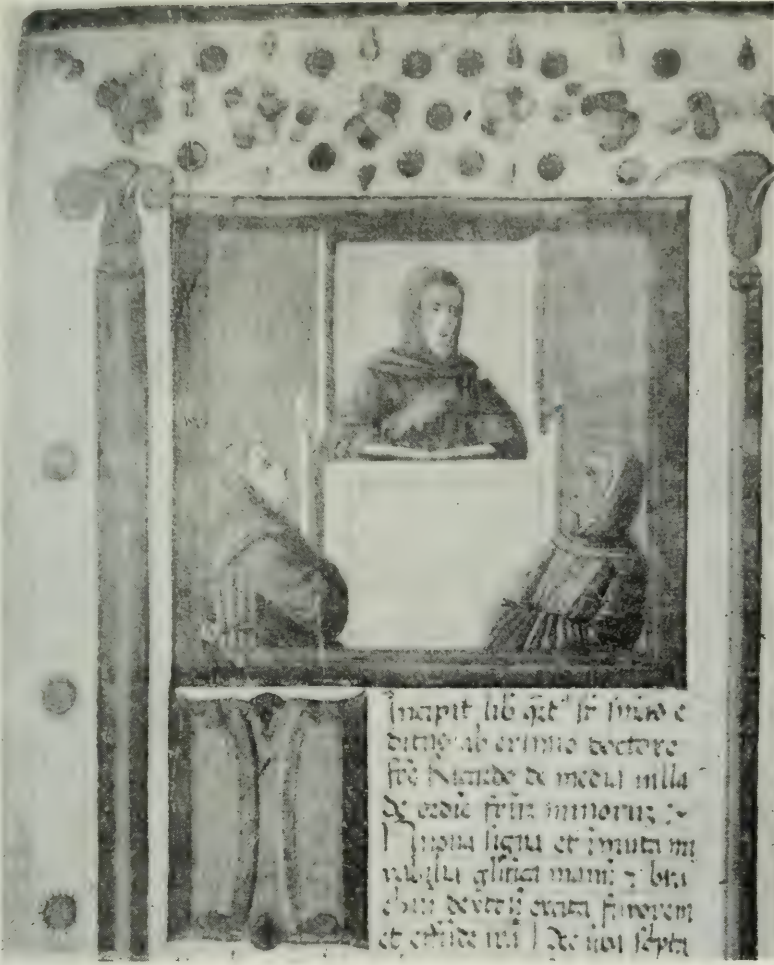 Incipit lib q̃rt' sr̃ sñiaȝ e
ditus ab eximio doctore
frẽ Ricardo de media uilla
de ordĩe frũm minorum
Innoua signa et ĩmuta mi
rabilia glĩfica manũ ⁊ bra
chiũ dextrũ excita furorem
et effũde irã